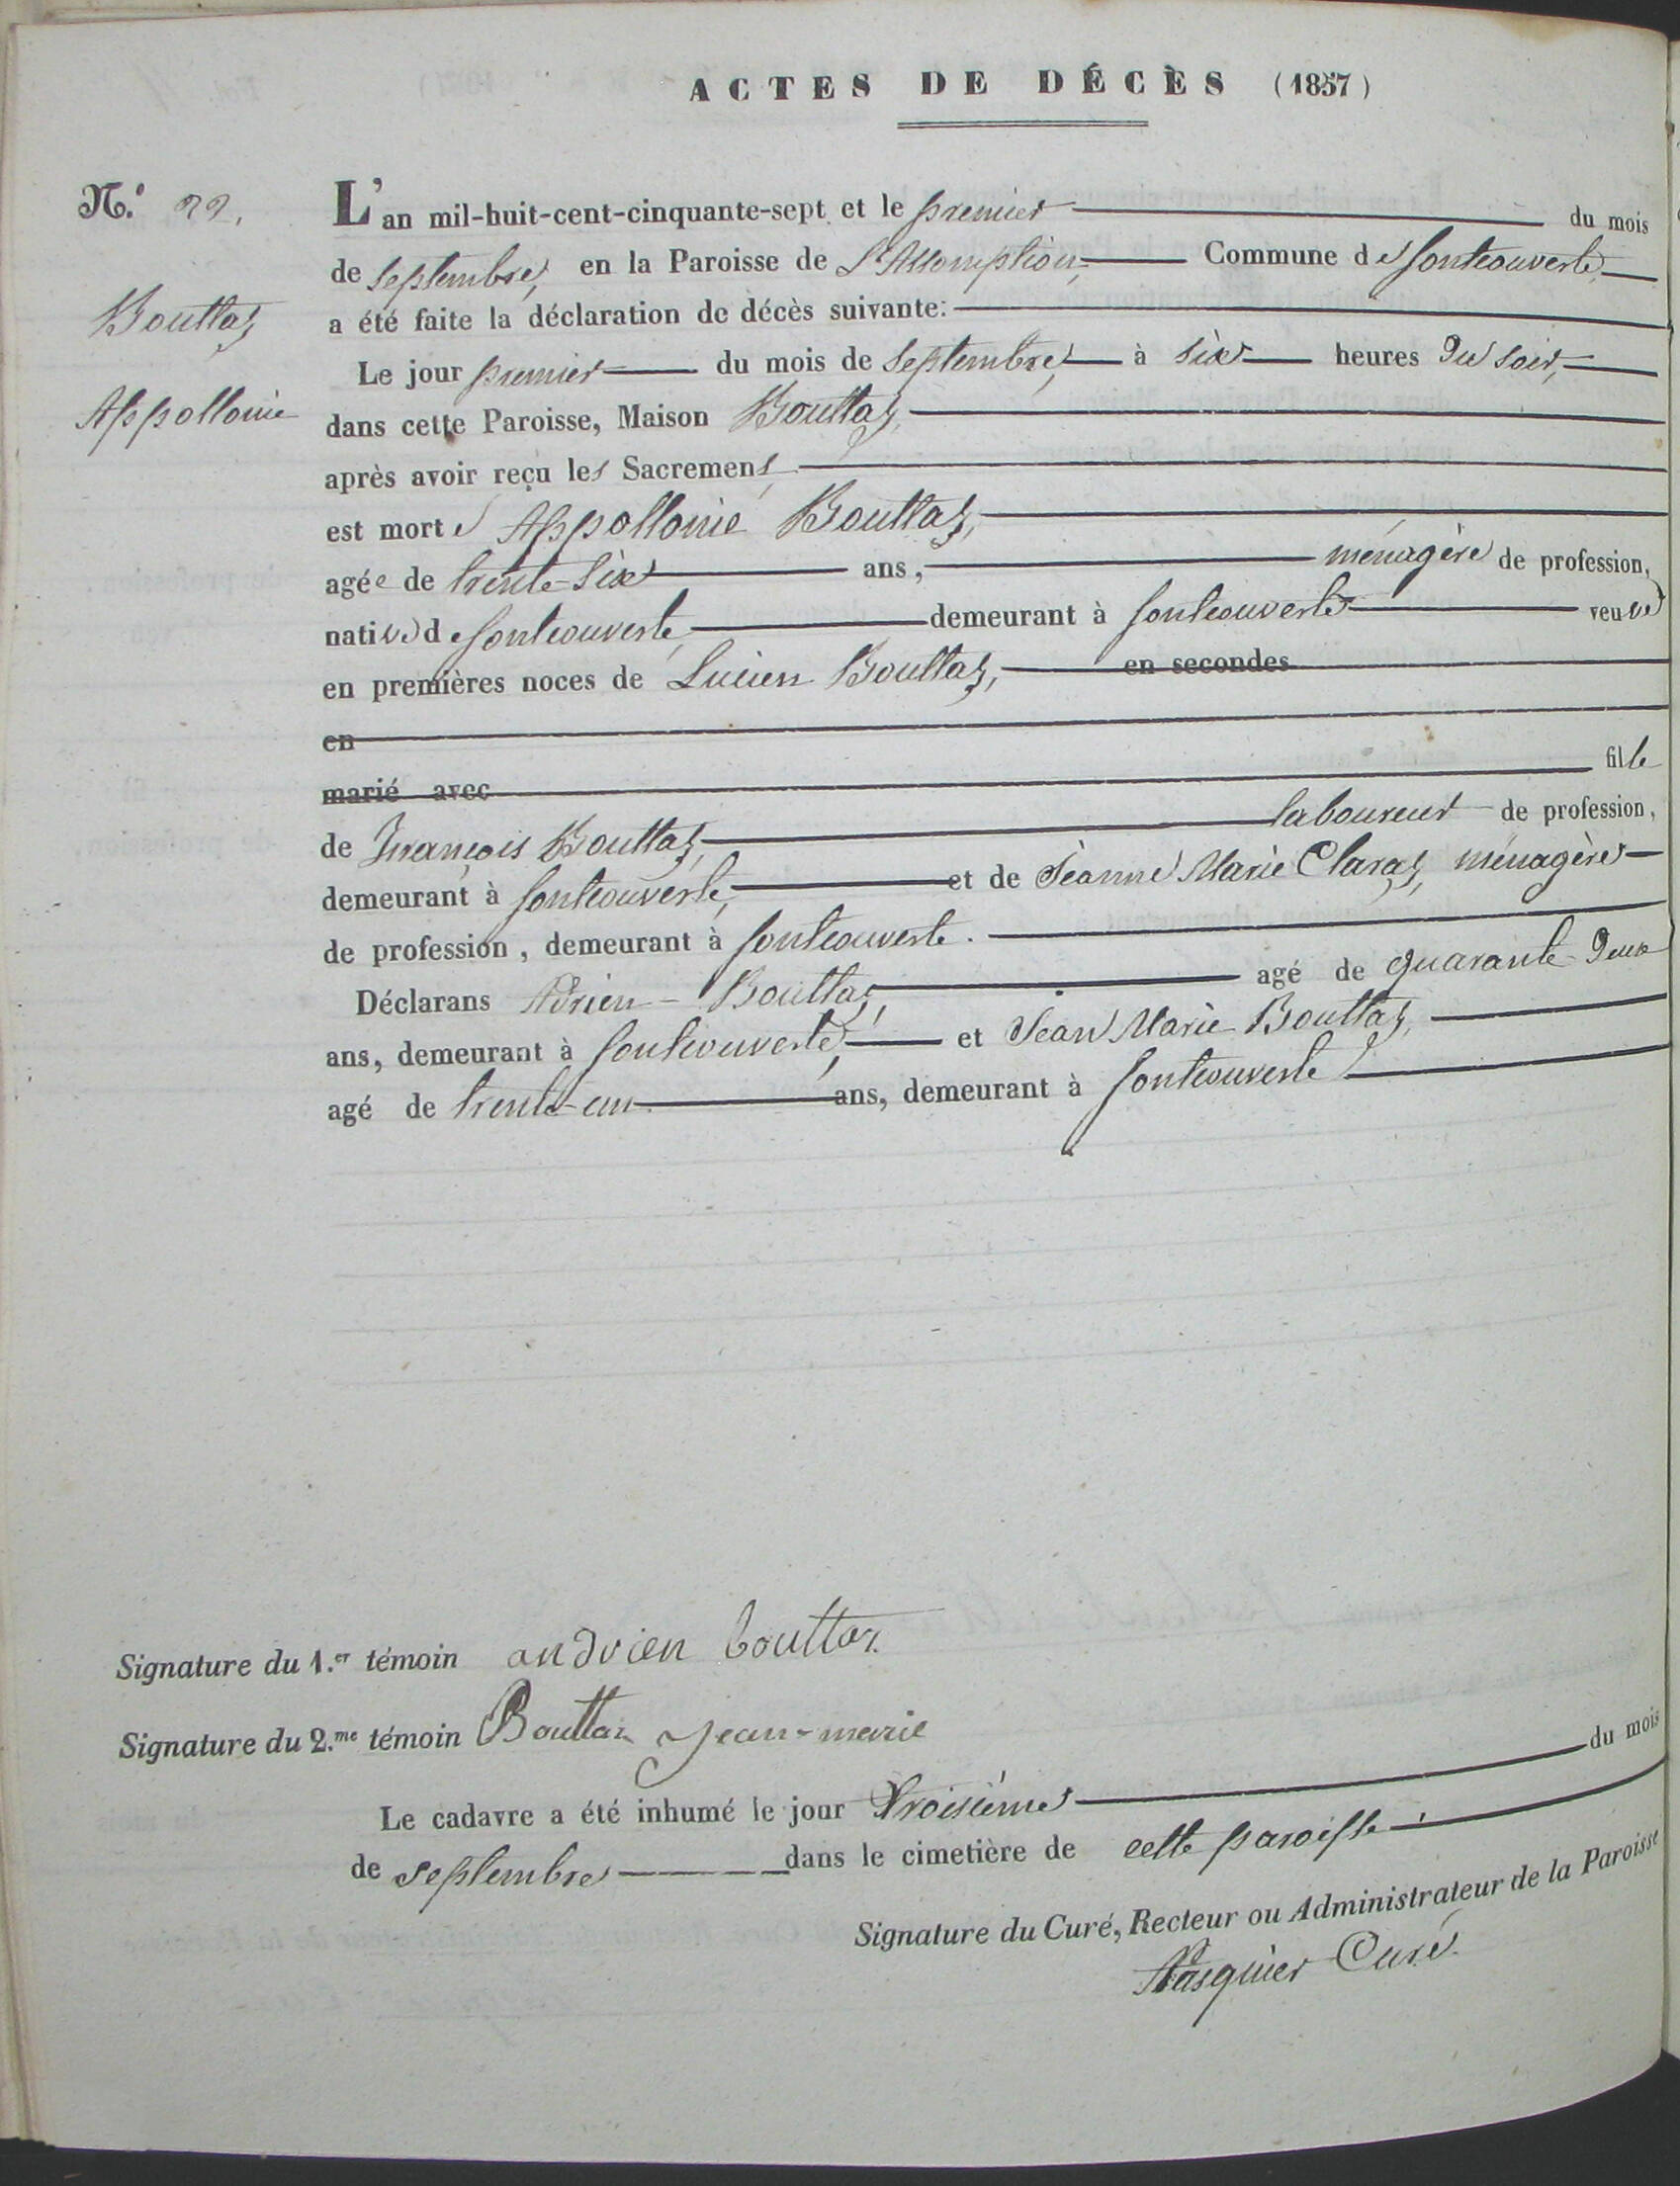 ACTES DE DÉCÈS (1857)
N.° 22.
Bouttaz
Appollonie
L'an mil-huit-cent-cinquante-sept et le premier du mois
de septembre, en la Paroisse de L'Assomption, Commune de fontcouverte
a été faite la déclaration de décès suivante:
Le jour premier du mois de septembre, à six heures du soir,
dans cette Paroisse, Maison Bouttaz,
après avoir reçu les Sacremens,
est morte Appollonie Bouttaz,
agée de trente-six ans, ménagère de profession,
native de fontcouverte, demeurant à fontcouverte veuve
en premières noces de Lucien Bouttaz, en secondes
en
marié avec fille
de François Bouttaz, laboureur de profession,
demeurant à fontcouverte, et de Jeanne Marie Claraz, ménagère
de profession, demeurant à fontcouverte.
Déclarans Adrien Bouttaz, agé de quarante deux
ans, demeurant à fontcouverte, et Jean Marie Bouttaz,
agé de trente-un ans, demeurant à fontcouverte
Signature du 1.er témoin andrien bouttaz
Signature du 2.me témoin Bouttaz jean-marie
Le cadavre a été inhumé le jour troisième du mois
de septembre dans le cimetière de cette paroisse.
Signature du Curé, Recteur ou Administrateur de la Paroisse
Curé